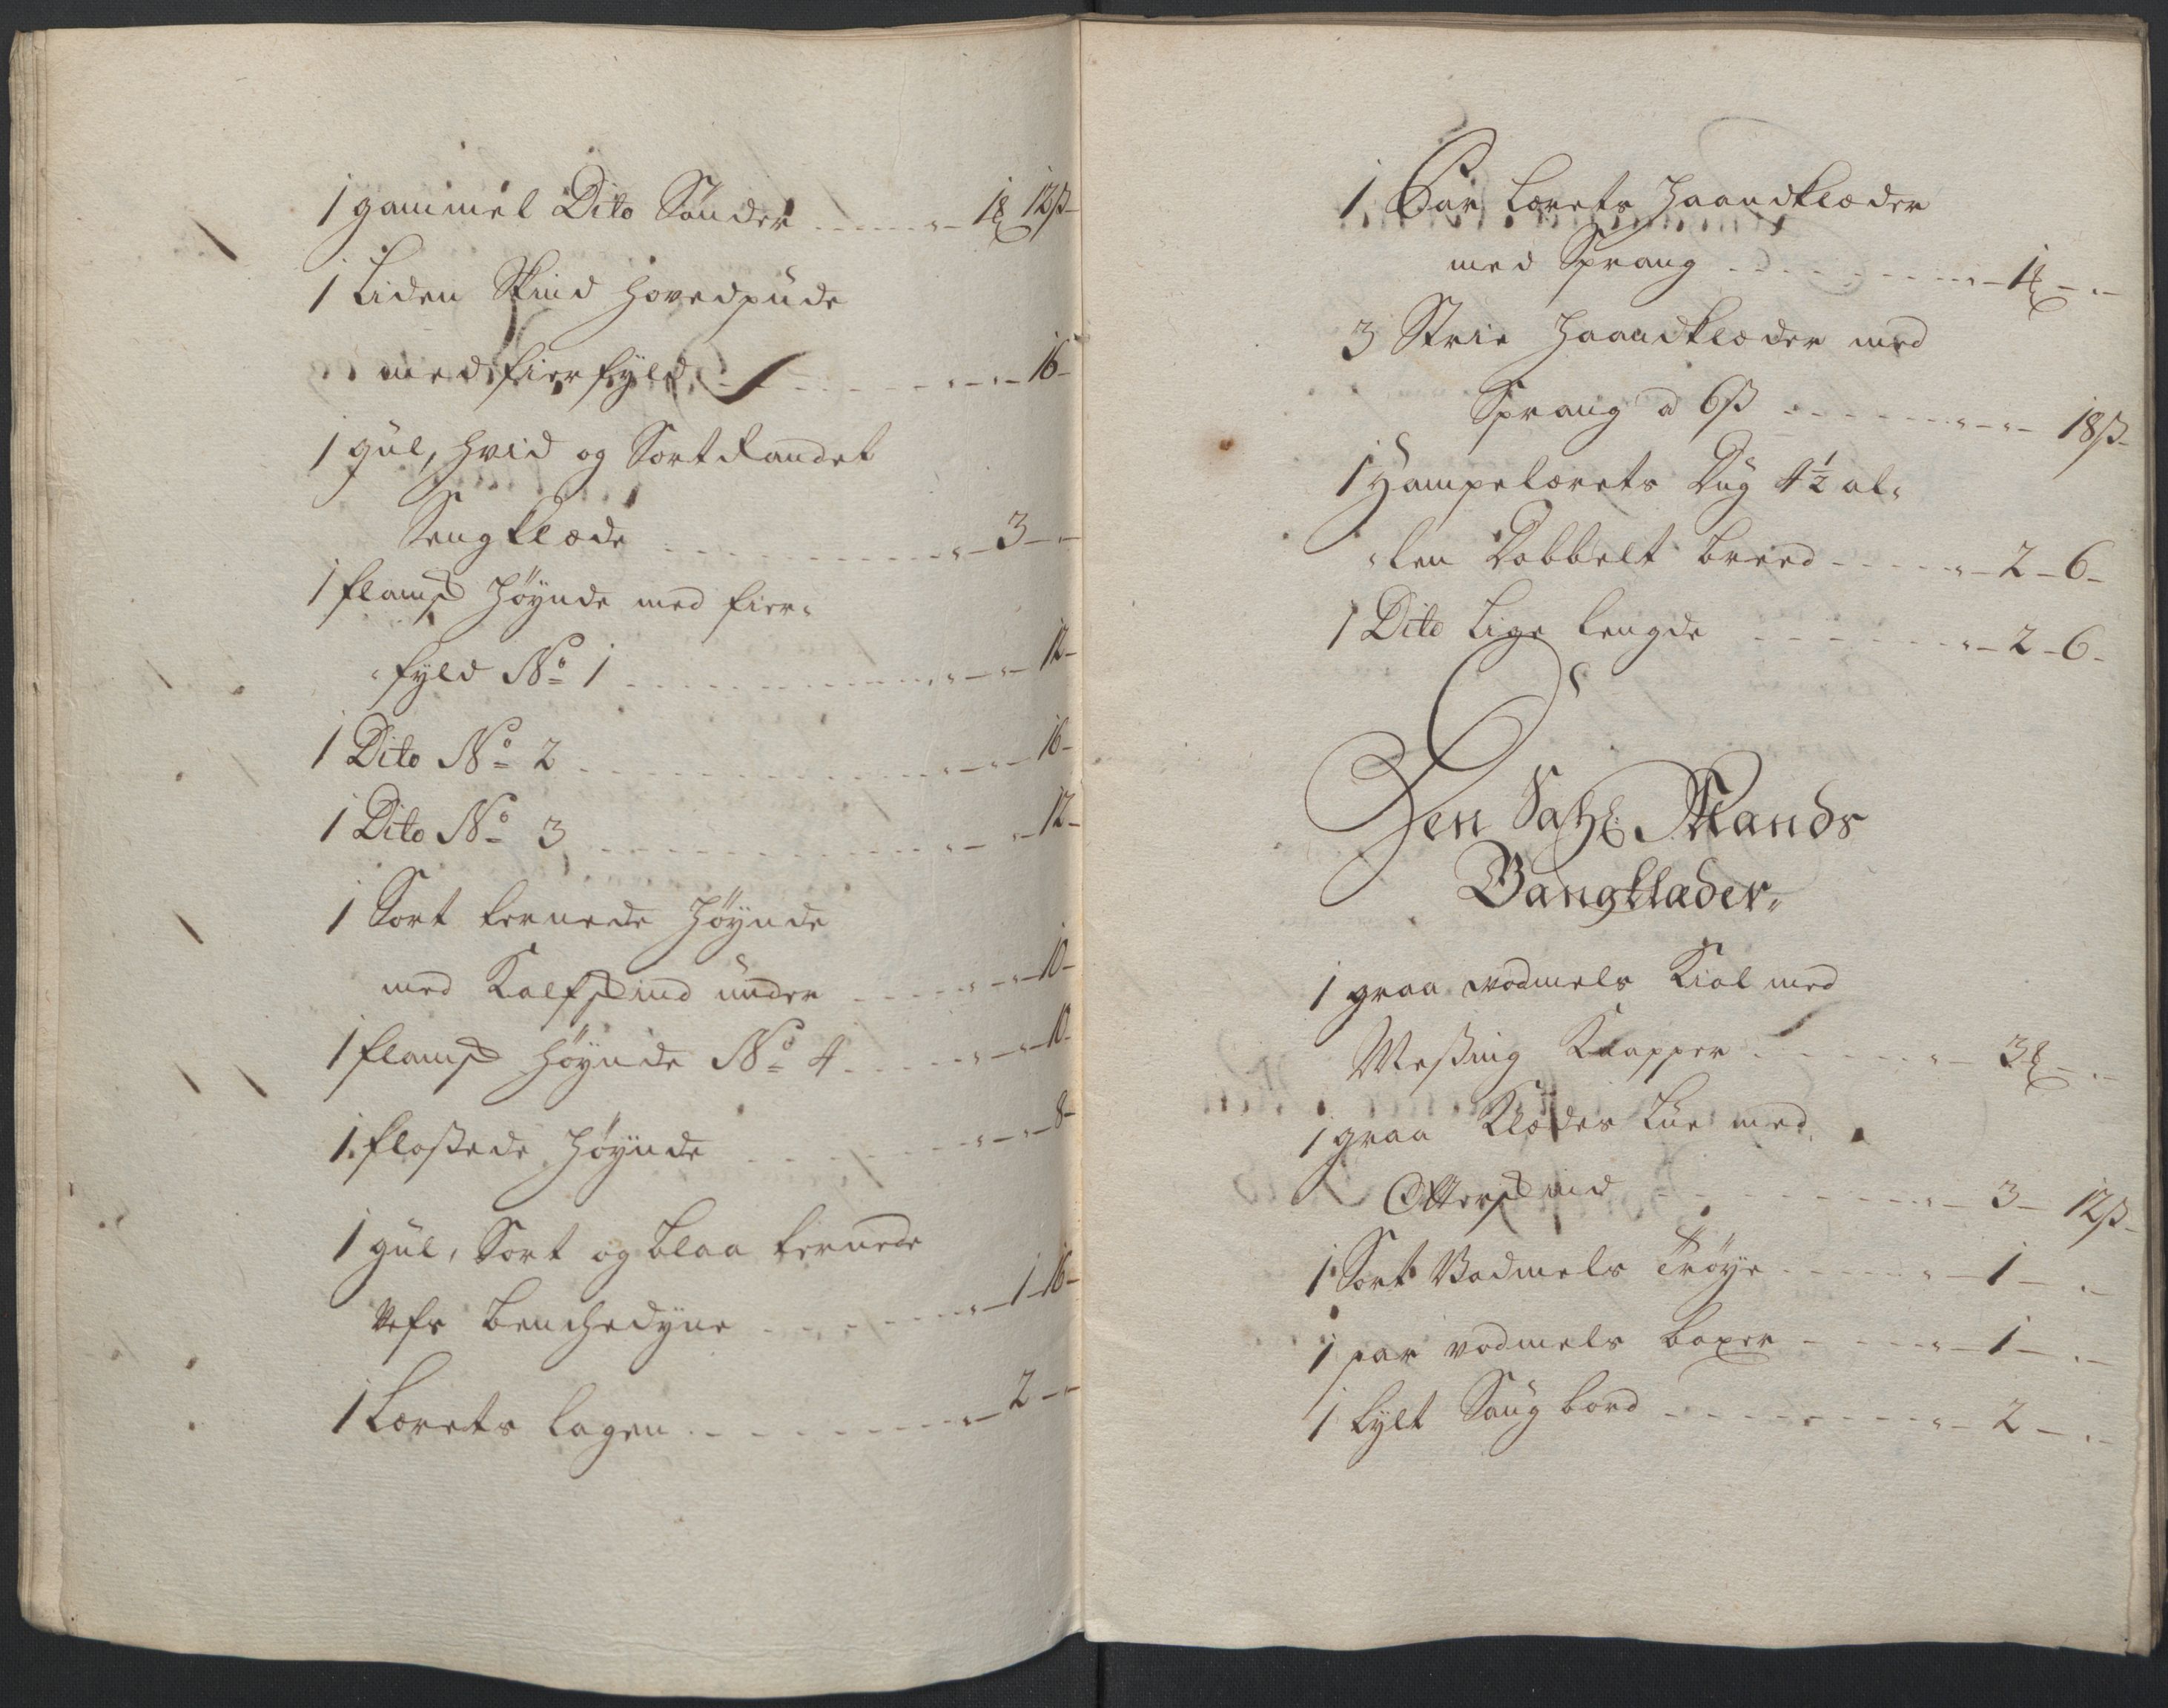 1 gammel Dito Sønder - - - - 1 ℔ 12 ß -
1 Liden Skind Hovedpude
med fierfyld - - - - 16 -
1 gul, hvid og Sort Randet
Sengklæde - - - - 3 - -
1 flamsk Höynde med fier-
fyld No 1 - - - - 12 -
1 Dito No 2 - - - - 16 -
1 Dito No 3 - - - - 12 -
1 Sort ternede Höynde
med Kalfskind under - - - - 10 -
1 flamsk Höynde No 4 - - - - 10 -
1 flossede Höynde - - - - 8 -
1 gul, Sort og blaa ternede
Vefs benchedyne - - - - 1 - 16 -
1 Lærets lagen - - - - 2 - -
1 Par Lærets Haandklæder
med Sprang - - - - 1 ℔ - -
3 Strie Haandklæder med
Sprang a 6 ß - - - - 18 ß -
1 Hampelærets Dug 4½ al-
len Dobbelt breed - - - - 2 - 6 -
1 Dito Lige lengde - - - - 2 - 6 -
Den Sahl. Mands
Gangklæder
1 graa vadmels Kiol med
Messing Knapper - - - - 3 ℔ - -
1 graa Klædes Lue med
Otterskind - - - - 3 - 12 ß -
1 Sort Vadmels Trøye - - - - 1 - -
1 par vadmels boxer - - - - 1 - -
1 Sang bord - - - - 2 - -